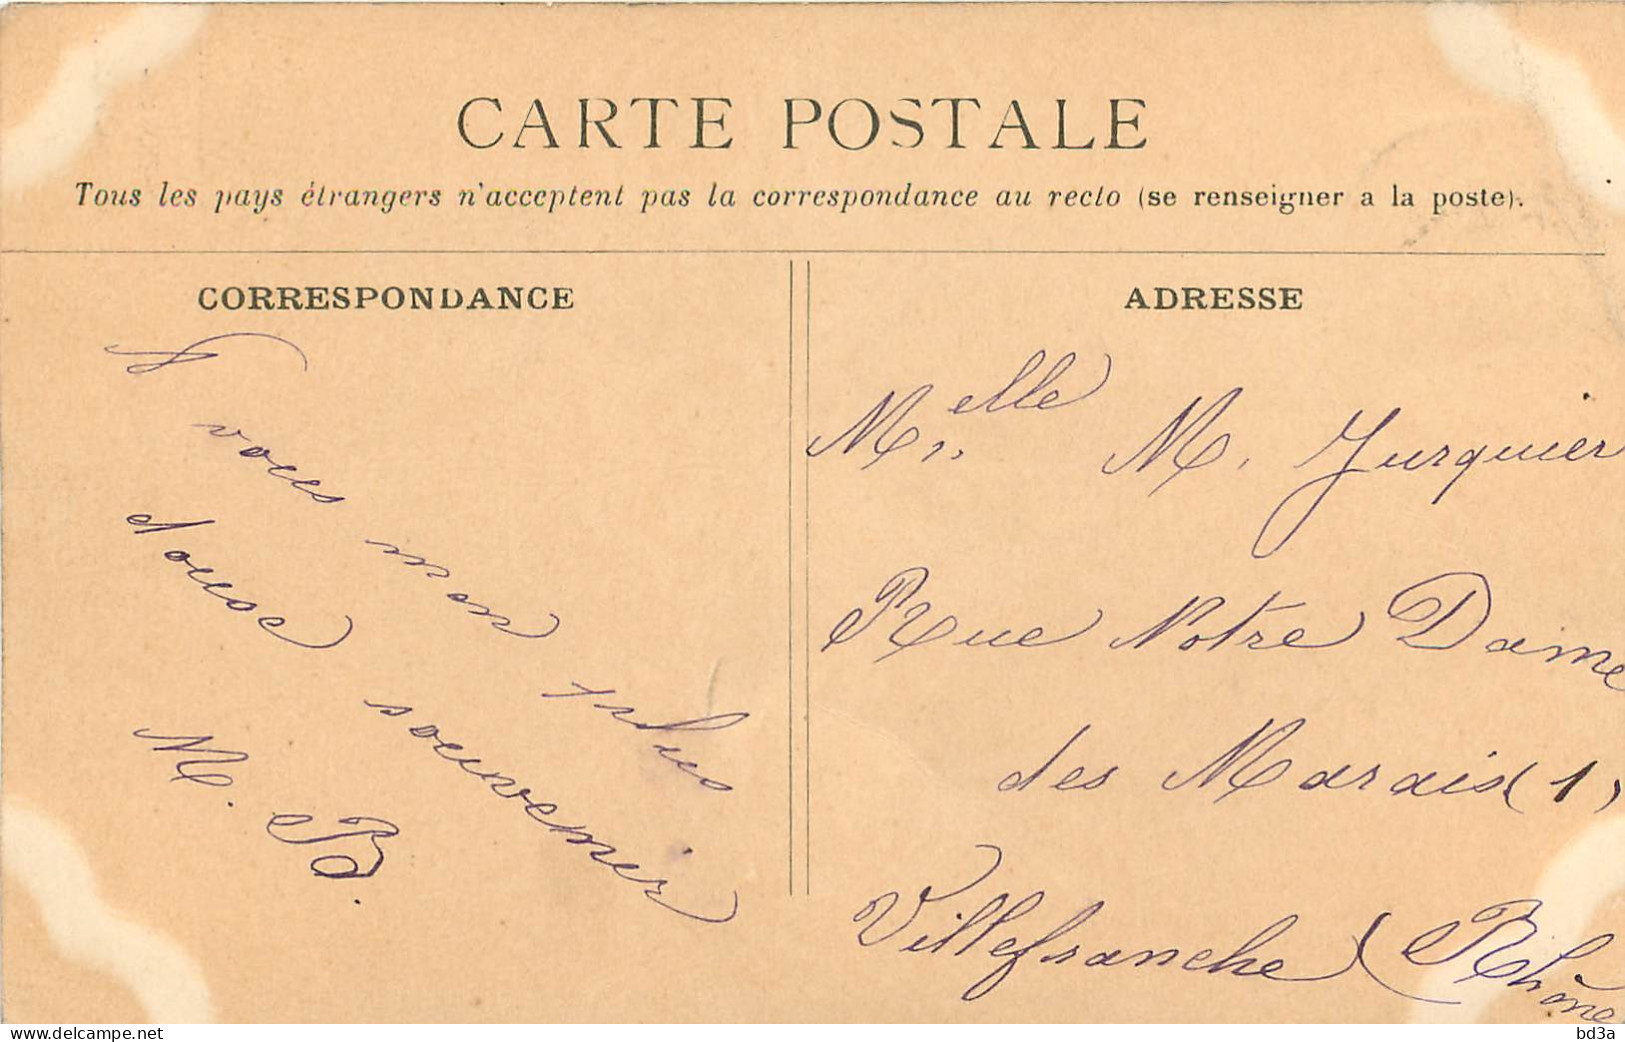 CARTE POSTALE
Tous les pays étrangers n'acceptent pas la correspondance au recto (se renseigner a la poste).
CORRESPONDANCE
A vous mon plus
douse souvenir
M. B.
ADRESSE
Melle M. Jurquier
Rue Notre Dame
des Marais (1)
Villefranche (Rhône
bd3a